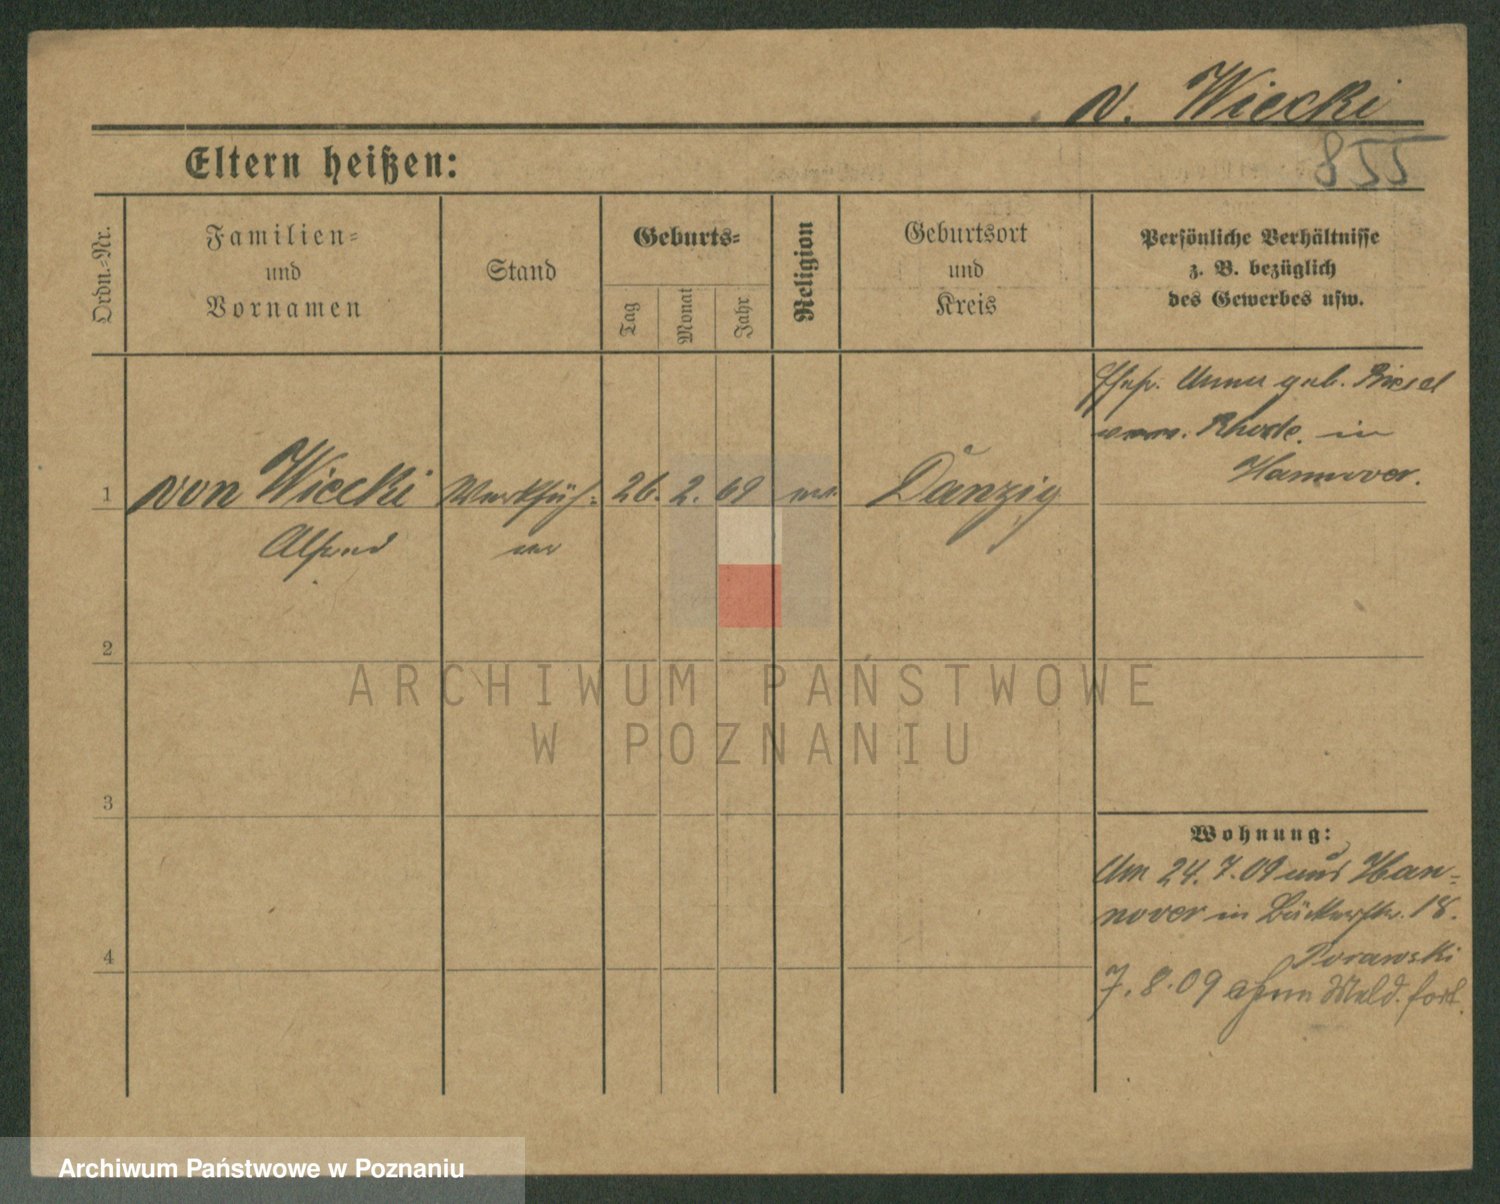 v. Wiecki
855
Eltern heißen:
Ordn.-Nr.
Familien-
und
Vornamen
Stand
Geburts-
Tag
Monat
Jahr
Religion
Geburtsort
und
Kreis
Persönliche Verhältnisse
z. B. bezüglich
des Gewerbes usw.
Ehefr. Anna geb.
Rhode in
Hannover.
1 von Wiecki Werkfüh- 26. 2. 69 ev. Danzig
Alfred rer
2
3
4
Wohnung:
Am 24. 7. 09 aus Han-
nover in Bäckerstr. 18.
7. 8. 09 ohne Meld. fort.
ARCHIWUM PAŃSTWOWE
W POZNANIU
Archiwum Państwowe w Poznaniu